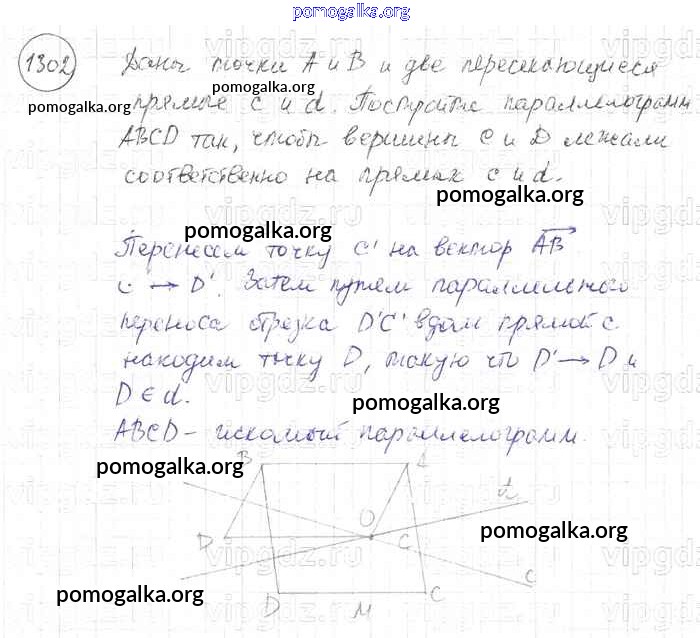 pomogalka.org
1302 Даны точки А и В и две пересекающиеся
pomogalka.org
pomogalka.org
прямые c и d. Постройте параллелограмм
ABCD так, чтобы вершины C и D лежали
соответственно на прямых c и d.
pomogalka.org
pomogalka.org
Перенесем точку C' на вектор AB
C' → D'. Затем путем параллельного
переноса отрезка D'C' вдоль прямой c
находим точку D, такую что D' → D и
D ∈ d.
pomogalka.org
ABCD – искомый параллелограмм.
pomogalka.org
B
d
O
pomogalka.org
D C
c
pomogalka.org
D M C